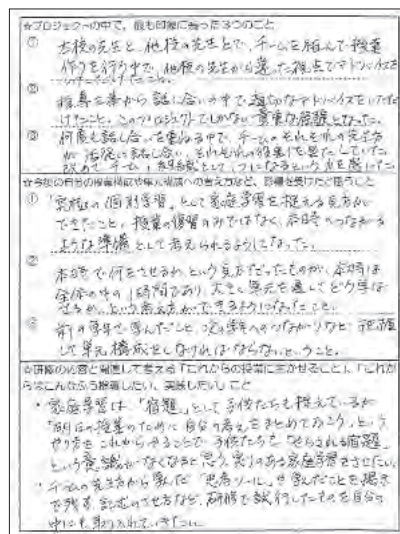 ☆プロジェクトの中で、最も印象に残った３つのこと
① 本校の先生と、他校の先生とで、チームを組んで授業
作りを行う中で、他校の先生から違った視点でアドバイスを
いただけたこと。
② 指導主事から話し合いの中で、適切なアドバイスをいただ
けたこと。このプロジェクトでしかない貴重な経験となった。
③ 何度も話し合いを重ねる中で、チームのそれぞれの先生方
が活発に話し合い、それぞれの役割を果たしていた
改めてチーム、組織として一つになるという力を感じた。
☆今後の自分の授業構成や単元構成への考え方など、影響を受けたと思うこと
① 「究極の個別学習」として家庭学習を捉える見方が
できたこと。授業の復習のみではなく、本時へつながる
ような準備として考えられるようになった。
② 本時で何をさせるか、という見方だったものが、本時は
全体の中の1時間であり、大きく単元を通してどう学ば
せるか、という考え方ができるようになったこと。
③ 前の学年で学んだこと、次の学年へのつながりなど把握
して単元構成をしなければならないということ。
☆研修の内容と関連して考える「これからの授業に生かせること」、「これか
らはこんなふう授業したい、実践したい」こと
・家庭学習は、「宿題」として子供たちも捉えているが
「明日の授業のために自分の考えをまとめておこう」という
やり方をこれからやることで、子供たちも「せらされる宿題」
という意識がなくなると思う。実りのある家庭学習をさせたい。
・チームの先生方から学んだ「思考ツール」や学んだことを掲示
で残す、記述のさせ方など、研修で試行したものを自分の
中にも取り入れていきたい。